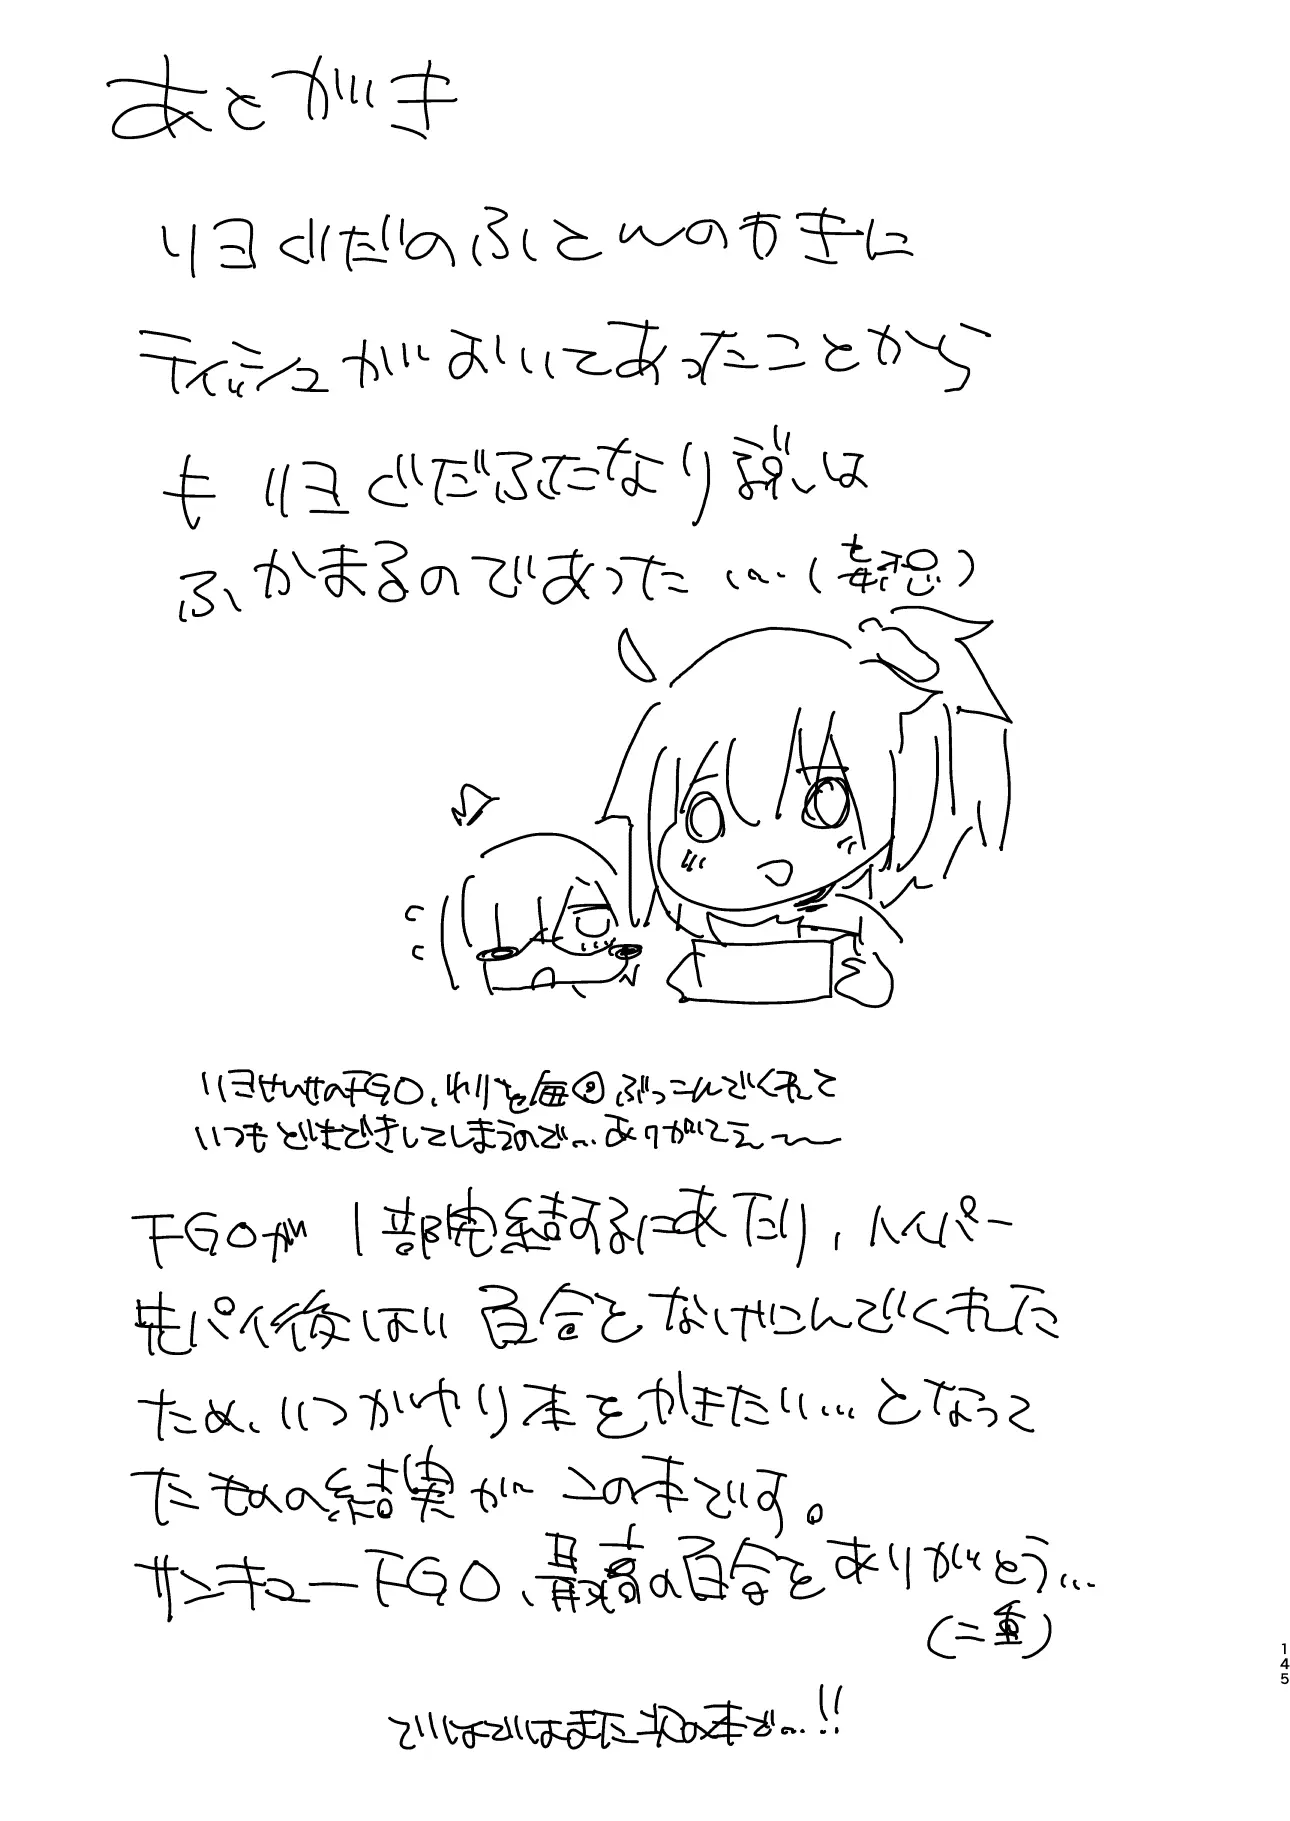 あとがき
リヨぐだのふとんのわきに
ティッシュがおいてあったことから
も リヨぐだふたなり説は
ふかまるのであった…(妄想)
リヨせんせのFGO、わりと毎回ぶっこんでくれて
いつもどきどきしてしまうので…ありがてえ〜
FGOが1部完結するにあたり、ハイパー
先パイ後はい百合をなげこんでくれた
ため、いつかやり本をかきたい…となって
たものの結実がこの本です。
サンキューFGO、最高の百合をありがとう…
(二重)
ではではまた次の本で…!!
145